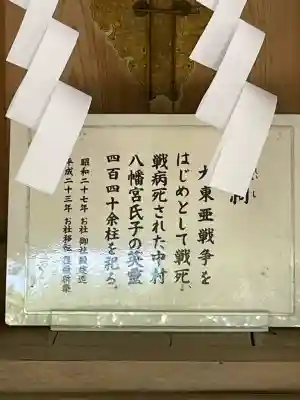 大東亜戦争を
はじめとして戦死、
戦病死された中村
八幡宮氏子の英霊
四百四十余柱を祀る。
昭和二十七年 お社 御社殿建造
平成二十三年 お社移転